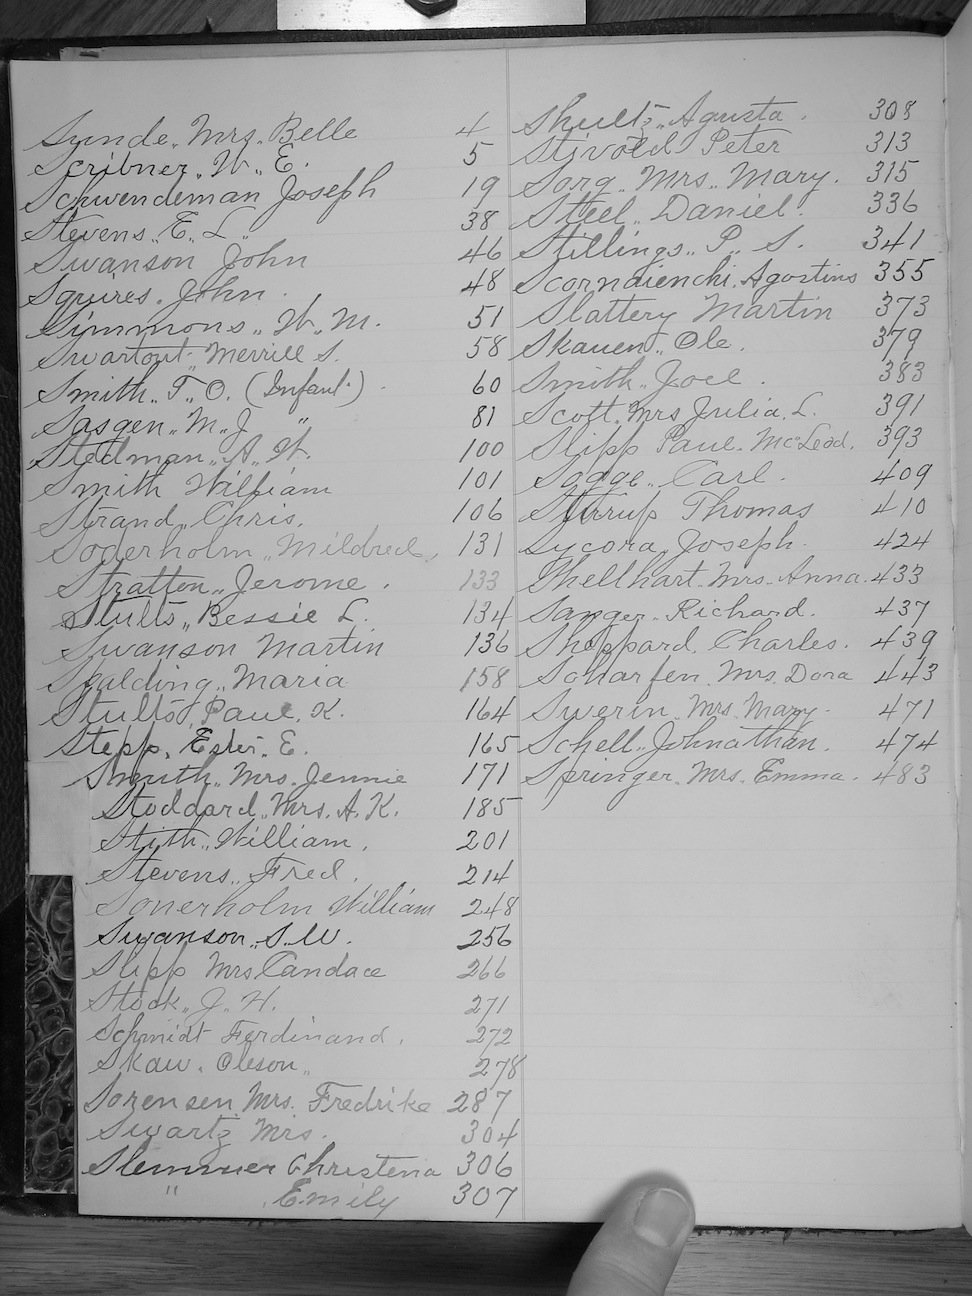 Sunde,, Mrs,, Belle 4
Scribner,, W,, E. 5
Schwendeman Joseph 19
Stevens,, E,, L,, 38
Swanson John 46
Squires. John. 48
Simmons,, W,, M. 51
Swartout,, Merrill S. 58
Smith,, T,, O. (Infant) 60
Sasgen,, M,, J " 81
Stedman,, A,, W. 100
Smith William 101
Strand,, Chris. 106
Soderholm,, Mildred, 131
Stratton,, Jerome. 133
Stults,, Bessie L. 134
Swanson Martin 136
Spalding,, Maria 158
Stults, Paul. K. 164
Stepp, Ester,, E. 165
Smith,, Mrs. Jennie 171
Stoddard,, Mrs. A. K. 185
Stith,, William. 201
Stevens,, Fred. 214
Sonerholm William 248
Swanson,, S. W. 256
Slipp Mrs. Candace 266
Stock,, J,, H. 271
Schmidt Ferdinand. 272
Skaw. Oleson,, 278
Sorensen Mrs. Fredrike 287
Swartz Mrs. 304
Slemmer Christena 306
" Emily 307
Shultz,, Agusta. 308
Peter 313
Sorg,, Mrs,, Mary. 315
Steel,, Daniel. 336
Stillings,, P,, S. 341
Agostins 355
Slattery Martin 373
Skauen,, Ole. 379
Smith,, Joel. 383
Scott,, Mrs Julia, L. 391
Slipp Paul. McLeod. 393
Sagge,, Carl. 409
Stirrup Thomas 410
Sycora, Joseph. 424
Shellhart,, Mrs. Anna. 433
Sanger,, Richard. 437
Sheppard, Charles. 439
Scharfen,, Mrs. Dora 443
Swerin,, Mrs. Mary. 471
Schell,, Johnathan. 474
Springer,, Mrs. Emma. 483